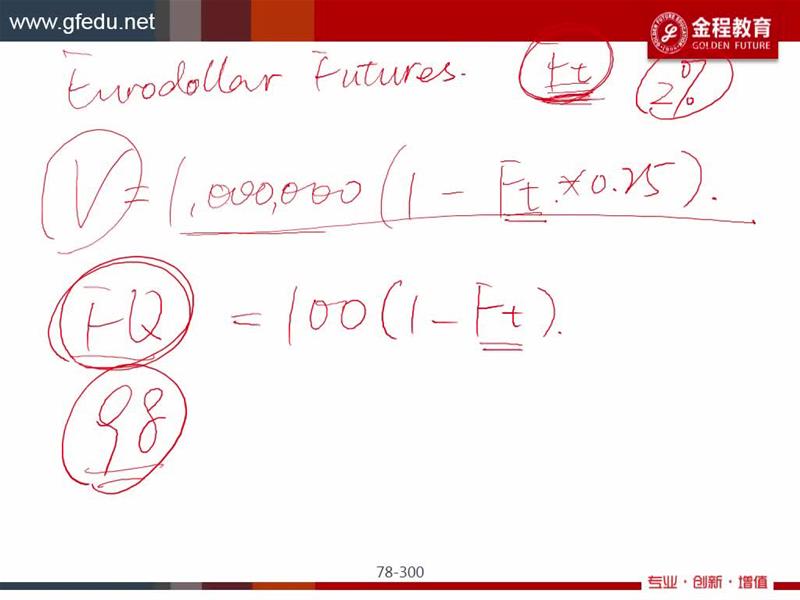 www.gfedu.net
金程教育
GOLDEN FUTURE
Eurodollar Futures. Ft 2%
V = 1,000,000 (1 - Ft × 0.25).
FQ = 100 (1 - Ft).
98
78-300
专业·创新·增值